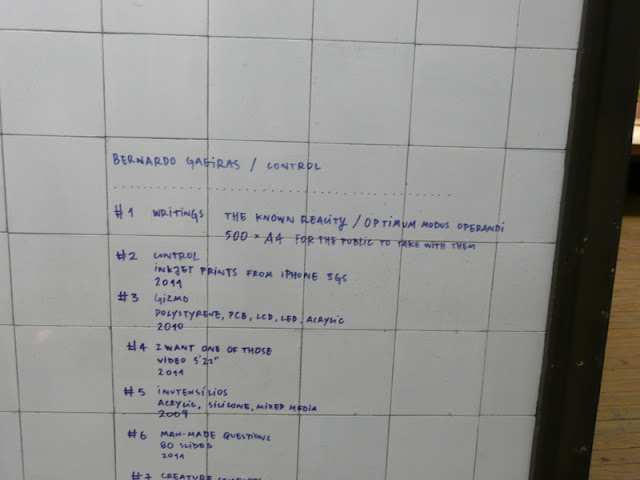 BERNARDO GAEIRAS / CONTROL
#1 WRITINGS THE KNOWN REALITY / OPTIMUM MODUS OPERANDI
500 × A4 FOR THE PUBLIC TO TAKE WITH THEM
#2 CONTROL
INKJET PRINTS FROM IPHONE 3GS
2011
#3 GIZMO
POLYSTYRENE, PCB, LCD, LED, ACRYLIC
2010
#4 I WANT ONE OF THOSE
VIDEO 5'22"
2011
#5 INUTENSÍLIOS
ACRYLIC, SILICONE, MIXED MEDIA
2009
#6 MAN-MADE QUESTIONS
80 SLIDES
2011
#7 CREATURE